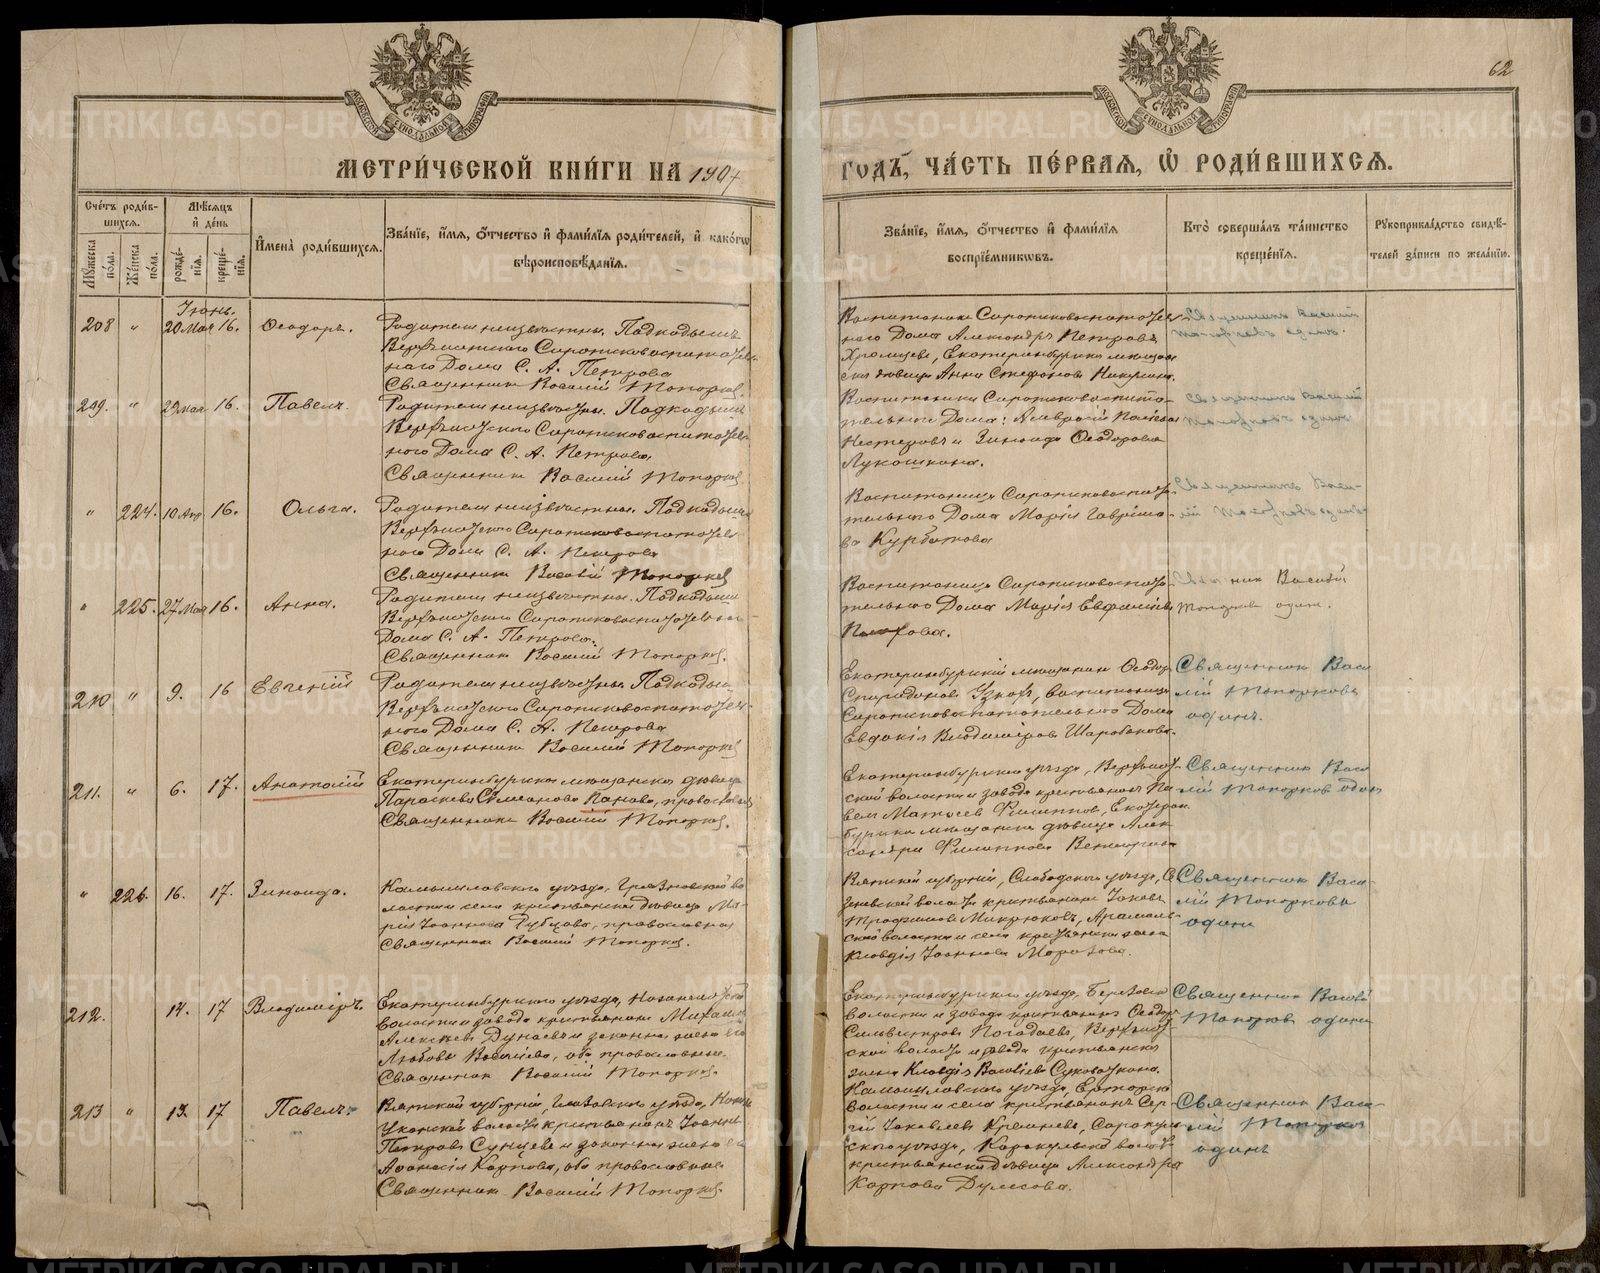 62
МЕТРИ́ЧЕСКОЙ КНИ́ГИ НА 1907
ГОДЪ, ЧА́СТЬ ПЕ́РВАЯ, Ѡ РОДИ́ВШИХСЯ.
Сче́тъ роди́в-
шихся.
Му́жеска по́ла.
Же́нска по́ла.
Мѣ́сяцъ
и҆ де́нь
рожде́-
нїя.
креще́-
нїя.
И҆мена̀ роди́вшихся.
Зва́нїе, и҆́мя, ѻ҆́тчество и҆ фами́лїя роди́телей, и҆ како́гѡ
вѣроисповѣ́данїя.
Зва́нїе, и҆́мя, ѻ҆́тчество и҆ фами́лїя
восприе́мникѡвъ.
Кто̀ соверша́лъ та́инство
креще́нїя.
Рꙋкоприкла́дство свидѣ́-
телей за́писи по жела́нїю.
Іюнь.
208 " 20 Мая 16. Ѳеодоръ.
Родители неизвѣстны. Подкидышъ
Верхъисетскаго Сиропиковоспитатель-
наго Дома С. А. Петрова
Священникъ Василій Топорков
Воспитанникъ Сиропиковоспитатель-
наго Дома Александръ Петровъ
Екатеринбургская мѣщан-
ская дѣвица Анна Стефанова
Священникъ Василій
Топорковъ одинъ.
209. " 29 Мая 16. Павелъ.
Родители неизвѣстны. Подкидышъ
Верхъисетскаго Сиропиковоспитатель-
наго Дома С. А. Петрова,
Священникъ Василій Топорков
Воспитанники Сиропиковоспита-
тельнаго Дома: Амвросій
Нестеровъ и Зинаида Ѳеодорова
Лукошкина.
Священникъ Василій
Топорковъ одинъ
" 224. 10 Апр. 16. Ольга.
Родители неизвѣстны. Подкидыш
Верхъисетскаго Сиропиковоспитатель-
наго Дома С. А. Петрова
Священникъ Василій Топорков
Воспитанница Сиропиковоспита-
тельнаго Дома Марія Гаврило-
ва Курбатова
Священникъ Васи-
лій Топорковъ одинъ
" 225. 27 Мая 16. Анна.
Родители неизвѣстны. Подкидыш
Верхъисетскаго Сиропиковоспитательна
Дома С. А. Петрова.
Священникъ Василій Топорков.
Воспитанница Сиропиковоспита-
тельнаго Дома Марія
Священникъ Василій
Топорковъ один.
210 " 9. 16 Евгеній
Родители неизвѣстны. Подкидыш
Верхъисетскаго Сиропиковоспитатель-
наго Дома С. А. Петрова
Священникъ Василій Топорков
Екатеринбургскій мѣщанин Ѳеодор
Спиридонов воспитанница
Сиропиковоспитательнаго Дома
Евдокія Владимірова
Священникъ Васи
лій Топорковъ
одинъ.
211. " 6. 17. Анатолій
Екатеринбургская мѣщанская дѣвица
Параскева Симеонова Панова, православн
Священникъ Василій Топорков.
Екатеринбургскаго уѣзда, Верхъисет-
ской волости и завода крестьянинъ Па-
велъ Матвеевъ Филиппов, Екатерин-
бургская мѣщанская дѣвица Алек-
сандра Филиппова
Священникъ Васи
лій Топорков один
" 226. 16. 17. Зинаида.
Камышловскаго уѣзда, Грязновской во
лости и села крестьянская дѣвица Ма-
рія Іоаннова Рубцова, православная
Священникъ Василій Топорков.
Вятской губерніи, Слободскаго уѣзда,
волости крестьянинъ Іаковъ
Трофимовъ Микрюковъ, Арамиль-
ской волости и села крестьянская жена
Клавдія Іоаннова Морозова.
Священникъ Васи-
лій Топорковъ
один
212. 14. 17 Владиміръ.
Екатеринбургскаго уѣзда,
волости и завода крестьянинъ Михаил
Алексѣевъ Дунаевъ и законная жена его
Любовь Васильева, оба православные.
Священникъ Василій Топорков.
Екатеринбургскаго уѣзда, Березовск
волости и завода крестьянинъ Ѳеодоръ
Сильвестровъ Погадаевъ, Верхъисет-
ской волости и завода крестьянская
жена Клавдія Васильева
Священникъ Васил
Топорков один
213 " 13. 17 Павелъ.
Вятской губерніи, Глазовскаго уѣзда,
Уканской волости крестьянинъ Іоаннъ
Петровъ Сунцовъ и законная жена его
Аѳанасія Карпова, оба православные
Священникъ Василій Топорков.
Камышловскаго уѣзда,
волости и села крестьянинъ Сер-
гій Іаковлевъ Сарапуль-
скаго уѣзда, Каракулинской волости
крестьянская дѣвица Александра
Карпова Дулесова.
Священникъ Васи-
лій Топорков
одинъ
METRIKI.GASO-URAL.RU